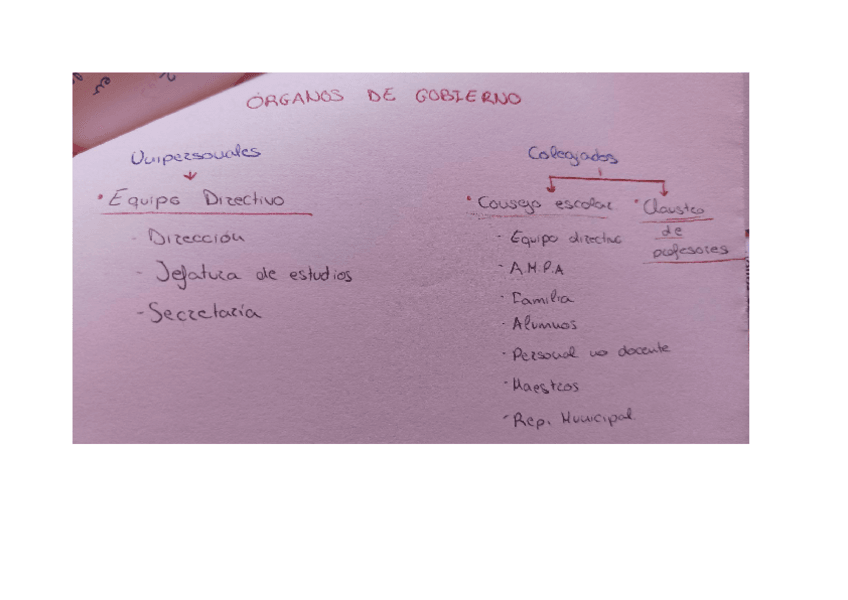 ÓRGANOS DE GOBIERNO
Unipersonales
· Equipo Directivo
- Dirección
- Jefatura de estudios
- Secretaría
Colegiados
· Consejo escolar
- Equipo directivo
- A.M.P.A
- Familia
- Alumnos
- Personal no docente
- Maestros
- Rep. Municipal
· Claustro
de
profesores